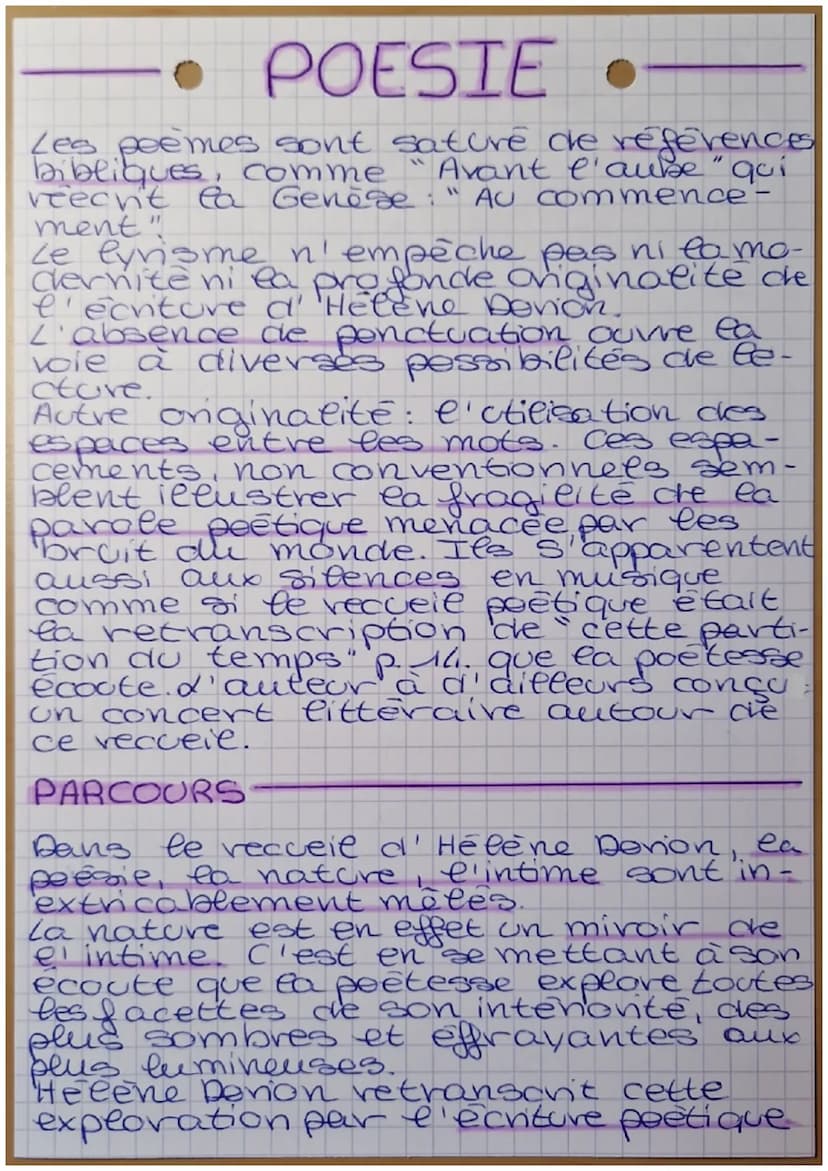 POESIE
Les poèmes sont saturé de références
bibliques, comme "Avant l'aube" qui
réecrit la Genèse : "Au commence-
ment".
Le lyrisme n'empêche pas ni la mo-
dernité ni la profonde originalité de
l'écriture d'Hélène Dorion.
L'absence de ponctuation ouvre la
voie à diverses possibilités de le-
cture.
Autre originalité : l'utilisation des
espaces entre les mots. Ces espa-
cements, non conventionnels sem-
blent illustrer la fragilité de la
parole poétique menacée par les
bruit du monde. Ils s'apparentent
aussi aux silences en musique
comme si le recueil poétique était
la retranscription de "cette parti-
tion du temps" p.14. que la poétesse
écoute. L'auteur à d'ailleurs conçu :
un concert littéraire autour de
ce recueil.
PARCOURS
Dans le recueil d'Hélène Dorion, la
poésie, la nature, l'intime sont in-
extricablement mêlés.
La nature est en effet un miroir de
l'intime. C'est en se mettant à son
écoute que la poétesse explore toutes
les facettes de son intériorité, des
plus sombres et effrayantes aux
plus lumineuses.
Hélène Dorion retranscrit cette
exploration par l'écriture poétique